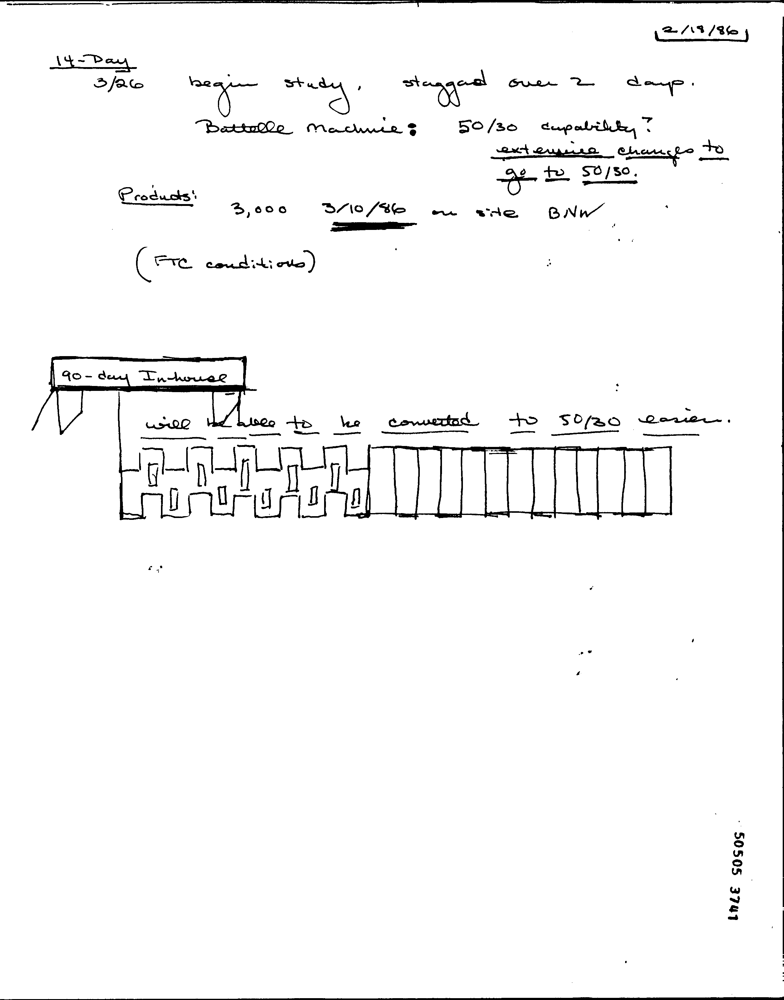 2/19/86
14-Day
3/26 begin study, staggard over 2 days.
Battelle Machine: 50/30 capability?
extensive changes to
go to 50/30.
Products:
3,000 3/10/86 on site BNW
(FTC conditions)
90-day In-house
will be able to be converted to 50/30 easier.
50505 3741